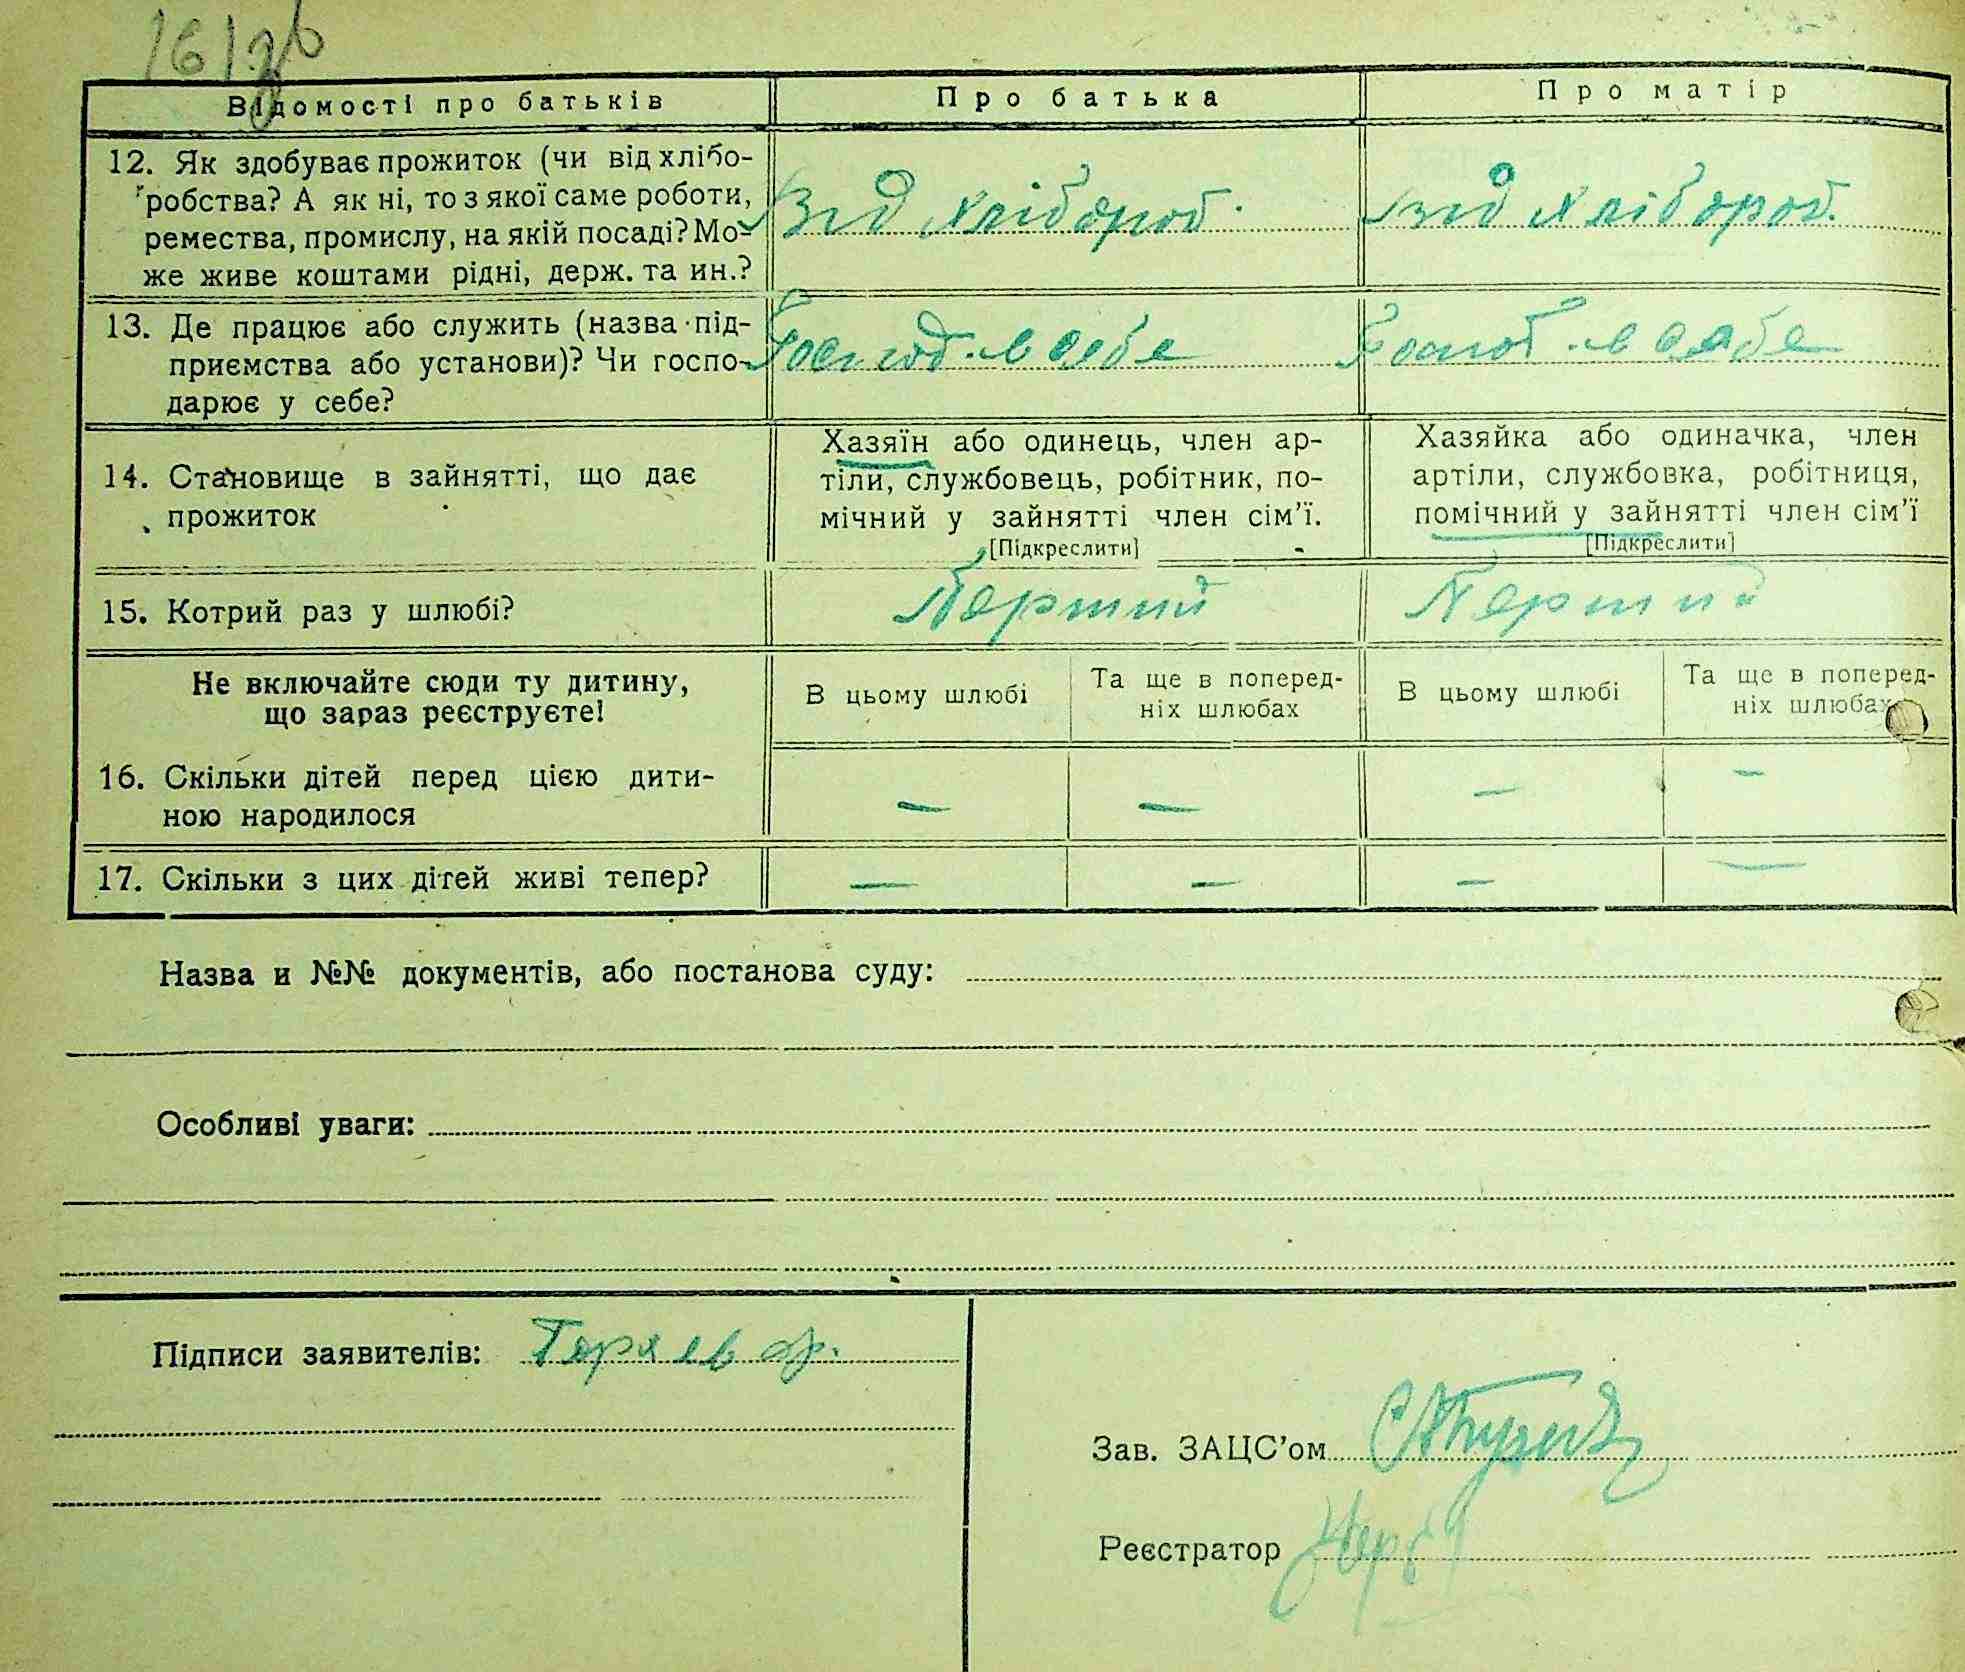 161зв
Відомості про батьків
Про батька
Про матір
12. Як здобуває прожиток (чи від хлібо-
робства? А як ні, то з якої саме роботи,
ремества, промислу, на якій посаді? Мо-
же живе коштами рідні, держ. та ин.?
Від хлібороб.
від хлібороб.
13. Де працює або служить (назва під-
приємства або установи)? Чи госпо-
дарює у себе?
Господ. в себе
Господ. в себе
14. Становище в зайнятті, що дає
прожиток
Хазяїн або одинець, член ар-
тіли, службовець, робітник, по-
мічний у зайнятті член сім'ї.
[Підкреслити]
Хазяйка або одиначка, член
артіли, службовка, робітниця,
помічний у зайнятті член сім'ї
[Підкреслити]
15. Котрий раз у шлюбі?
Перший
Перший
Не включайте сюди ту дитину,
що зараз реєструєте!
В цьому шлюбі
Та ще в поперед-
ніх шлюбах
В цьому шлюбі
Та ще в поперед-
ніх шлюбах
16. Скільки дітей перед цією дити-
ною народилося
— — — —
17. Скільки з цих дітей живі тепер?
— — — —
Назва и №№ документів, або постанова суду:
Особливі уваги:
Підписи заявителів:
Зав. ЗАЦС'ом
Реєстратор